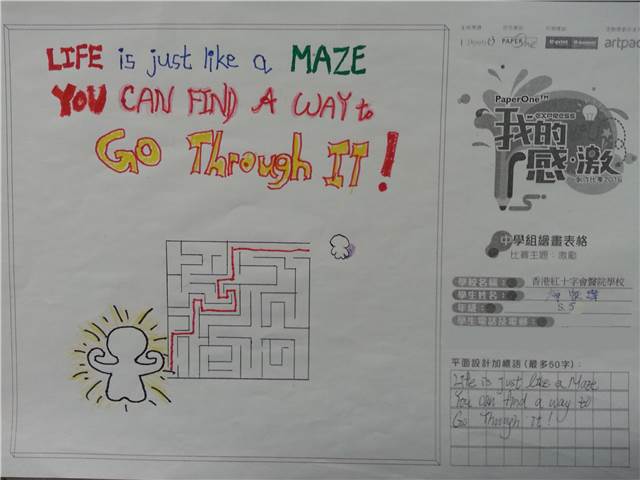 LIFE is just like a MAZE
YOU CAN FIND A WAY to
Go Through IT!
PAPER
artpac
PaperOne™
express
我的
感·激
中學組繪畫表格
比賽主題：激勵
學校名稱：
香港紅十字會醫院學校
學生姓名：
年級：
S.5
學生電話及電郵：
平面設計加標語(最多50字)：
Life is just like a Maze
You can find a way to
Go Through it!